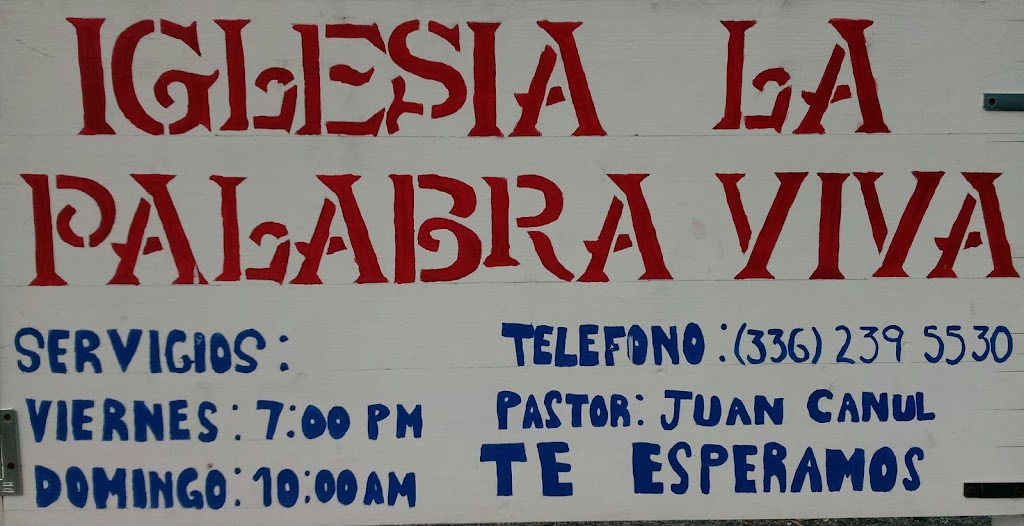 IGLESIA LA
PALABRA VIVA
SERVICIOS:
VIERNES: 7:00 PM
DOMINGO: 10:00AM
TELEFONO: (336) 239 5530
PASTOR: JUAN CANUL
TE ESPERAMOS